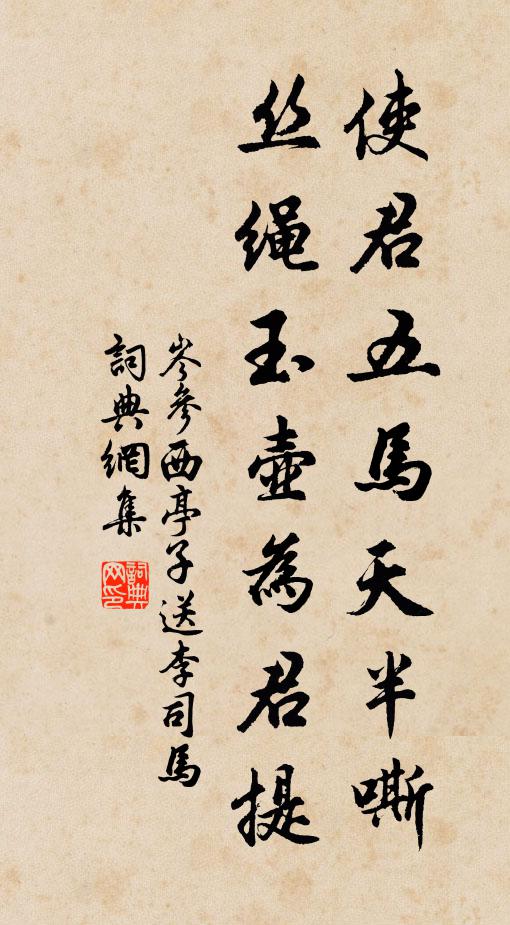 使君五馬天半嘶
丝繩玉壺為君提
岑參西亭子送李司馬
詞典網集
詞典网印